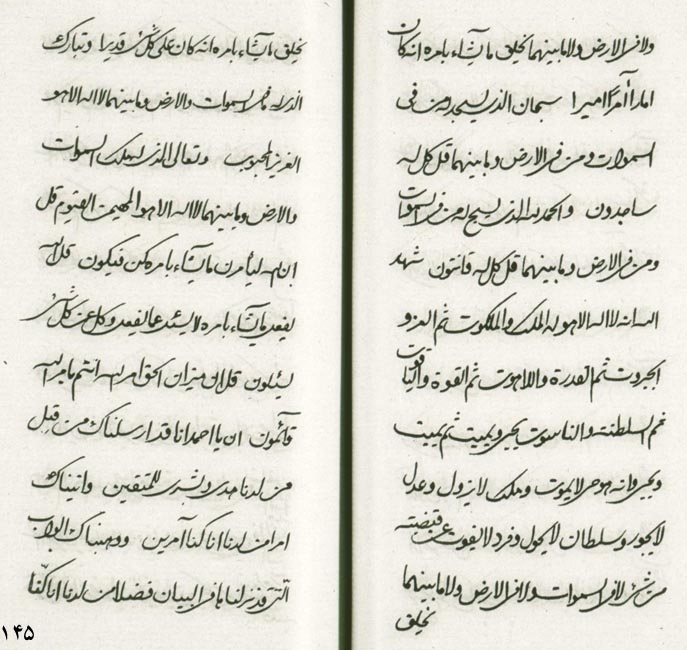 ولا فی الارض ولا ما بینهما یخلق ما یشاء بامره انه کان
امارا أمرا امیرا سبحان الذی یسجد له من فی
السموات و من فی الارض و ما بینهما قل کل له
ساجدون والحمد لله الذی یسبح له من فی السموات
و من فی الارض و ما بینهما قل کل له قانتون شهد
الله انه لا اله الا هو له الملک والملکوت ثم العز و
الجبروت ثم القدرة واللاهوت ثم القوة والیاقوت
ثم السلطنة والناسوت یحیی و یمیت ثم یمیت
و یحیی وانه هو حی لا یموت و ملک لا یزول و عدل
لا یجور و سلطان لا یحول و فرد لا یفوت عن قبضته
من شیء لا فی السموات ولا فی الارض ولا ما بینهما
یخلق
یخلق ما یشاء بامره انه کان علی کل شیء قدیرا و تبارک
الذی له ما فی السموات والارض و ما بینهما لا اله الا هو
العزیز المحبوب و تعالی الذی له ملک السموات
والارض و ما بینهما لا اله الا هو المهیمن القیوم قل
ان الله لیأمرن ما یشاء بامره کن فیکون قل الله
یفعل ما یشاء بامره لا یسئل عما یفعل و کل عن کل شیء
یسئلون قل ان میزان الحق امر الله انتم بامر الله
قائمون ان یا احمد انا قد ارسلناک من قبل
من لدنا هدی و بشری للمتقین و اتیناک
امرا من لدنا انا کنا آمرین و وهبناک ابواب
التی قد نزلنا بها فی البیان فضلا من لدنا انا کنا
۱۴۵